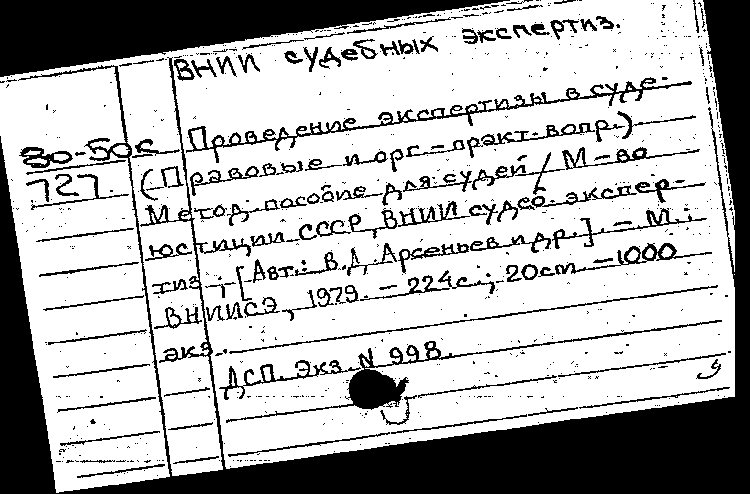 ВНИИ судебных экспертиз.
Зо-50с Проведение экспертизы в суде:
727. (Правовые и орг.-практ. вопр.)
Метод. пособие для судей / М-во
юстиции СССР, ВНИИ судеб. экспер-
тиз ; [Авт.: В.Д. Арсеньев и др.]. - М.:
ВНИИСЭ, 1979. - 224с.; 20см. -1000
экз.
ДСП. Экз. N 998.